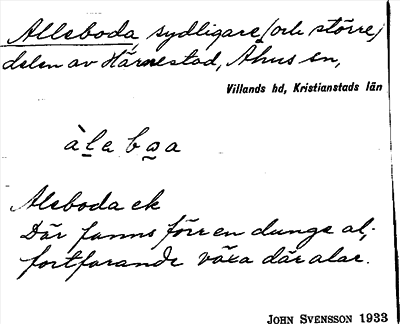 Alleboda, sydligare (och större)
delen av Härnestad, Åhus sn,
Villands hd, Kristianstads län
àleboa
Aleboda ek
Där fanns förr en dunge al;
fortfarande växa där alar.
JOHN SVENSSON 1933